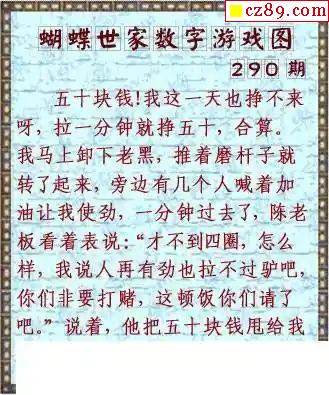 cz89.com
蝴蝶世家数字游戏图
290期
五十块钱!我这一天也挣不来
呀，拉一分钟就挣五十，合算。
我马上卸下老黑，推着磨杆子就
转了起来，旁边有几个人喊着加
油让我使劲，一分钟过去了，陈老
板看着表说:“才不到四圈，怎么
样，我说人再有劲也拉不过驴吧，
你们非要打赌，这顿饭你们请了
吧。”说着，他把五十块钱甩给我